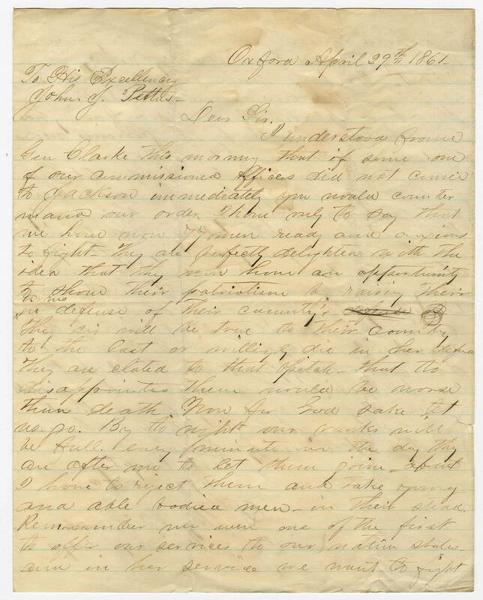 Oxford April 29th 1861
To His Excellency
John J. Pettus
Dear Sir.
I understood from
Gen Clarke this morning that if some one
of our commissioned officers did not come
to Jackson immediately you would counter
mand our order. I have only to say that
we have now men ready and anxious
to fight. They are perfectly delighted with the
idea that they now have an opportunity
to show their patriotism by their
in defense of their country's
they Sir will be true to their country
to the last or willingly die in her
They are elated to that that to
disappointed them would be worse
than death. Now for God sake let
us go. By to night our will
be full. Every minute in the day they
are after me to let them join
I have to reject them and take young
and able bodied men in their stead.
Remember we were one of the first
to offer our services to our native state
and in her service we want to fight